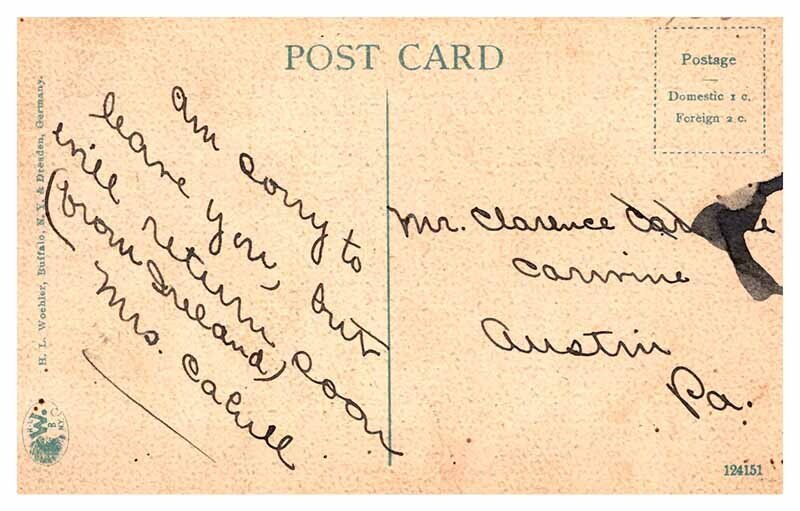 POST CARD
Postage
Domestic 1 c.
Foreign 2 c.
H. L. Woehler, Buffalo, N.Y. & Dresden, Germany.
am sorry to
leave you, but
will return soon
(from Ireland)
Mrs. Cahill
Mr. Clarence
Carvine
Austin
Pa.
W.
124151